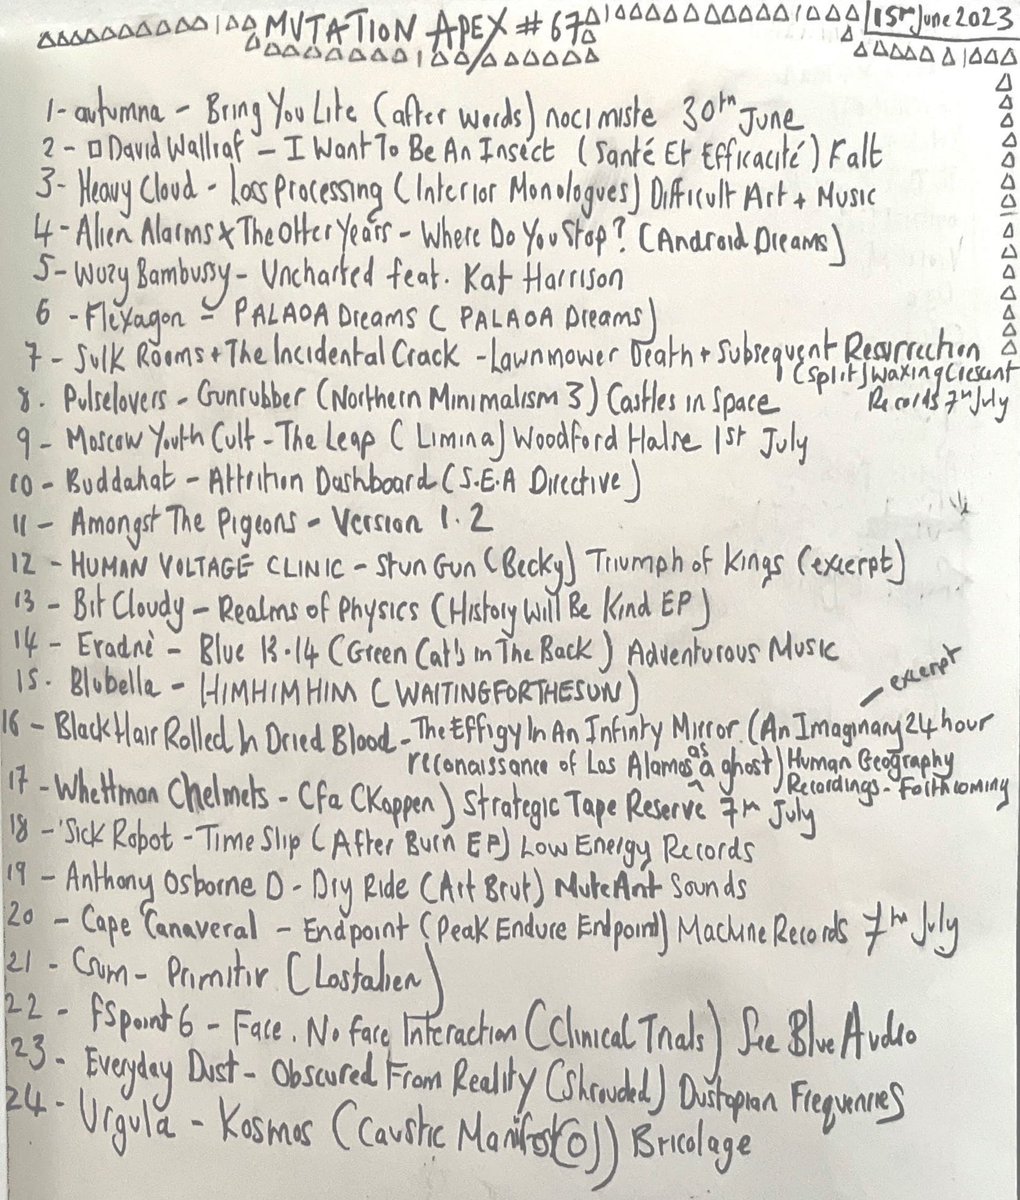 MUTATION APEX # 67
15th June 2023
1- autumna - Bring You Lite (after words) nocimiste 30th June
2 - David Wallraf - I Want To Be An Insect (Santé Et Efficacité) Falt
3- Heavy Cloud - Loss Processing (Interior Monologues) Difficult Art + Music
4- Alien Alarms x The Otter Years - Where Do You Stop? (Android Dreams)
5- Wuzy Bambussy - Uncharted feat. Kat Harrison
6 - Flexagon - PALAOA Dreams (PALAOA Dreams)
7 - Sulk Rooms + The Incidental Crack - Lawnmower Death + Subsequent Resurrection
(Split) Waxing Crescent
Records 7th July
8. Pulselovers - Gunrubber (Northern Minimalism 3) Castles in Space
9 - Moscow Youth Cult - The Leap (Limina) Woodford Halse 1st July
10 - Buddahat - Attrition Dashboard (S.E.A Directive)
11 - Amongst The Pigeons - Version 1.2
12 - HUMAN VOLTAGE CLINIC - Stun Gun (Becky) Triumph of Kings (excerpt)
13 - Bit Cloudy - Realms of Physics (History Will Be Kind EP)
14 - Eradnè - Blue 13.14 (Green Cat's In The Back) Adventurous Music
15. Blubella - HIMHIMHIM (WAITINGFORTHESUN)
excerpt
16 - Black Hair Rolled In Dried Blood - The Effigy In An Infinty Mirror (An Imaginary 24 hour
reconaissance of Los Alamos as a ghost) Human Geography
Recordings - Forthcoming
17 - Whettman Chelmets - Cfa (Koppen) Strategic Tape Reserve 7th July
18 - Sick Robot - Time Slip (After Burn EP) Low Energy Records
19 - Anthony Osborne D - Dry Ride (Art Brut) MuteAnt Sounds
20 - Cape Canaveral - Endpoint (Peak Endure Endpoint) Machine Records 7th July
21 - Csum - Primitiv (Lostalien)
22 - fspoint6 - Face. No face Interaction (Clinical Trials) See Blue Audio
23 - Everyday Dust - Obscured From Reality (Shrouded) Dustopian Frequencies
24 - Urgula - Kosmos (Caustic Manifest(o)) Bricolage